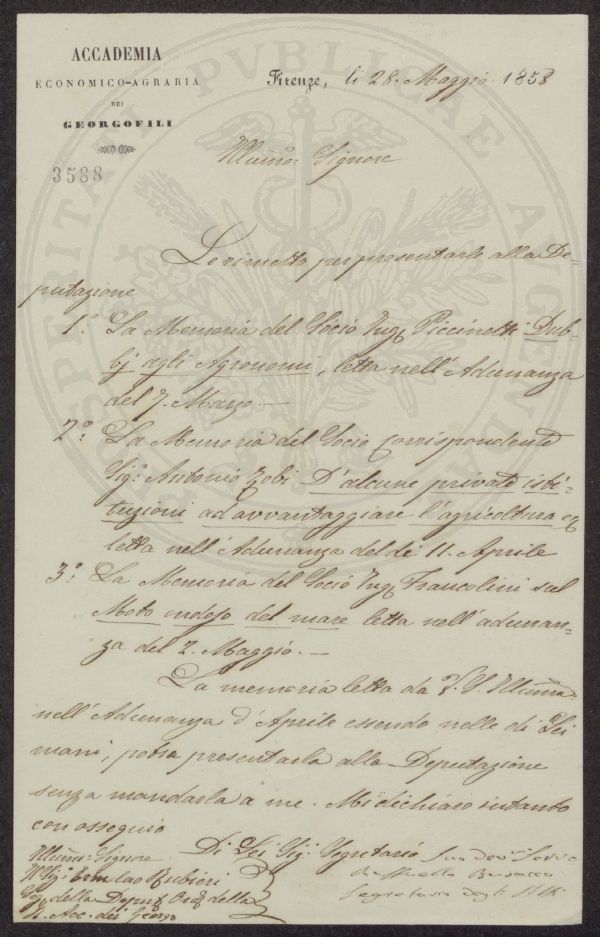 ACCADEMIA
ECONOMICO-AGRARIA
DEI
GEORGOFILI
3588
Firenze, li 28. Maggio 1858
Illmo: Signore
Le rimetto per presentarle alla De-
putazione
1.° La Memoria del Socio Ing. Piccinetti Dub-
bj agli Agronomi, letta nell'Adunanza
del 7. Marzo.—
2.° La Memoria del Socio Corrispondente
Sig.r Antonio Zobi D'alcune private isti-
tuzioni ad avvantaggiare l'agricoltura
letta nell'Adunanza del dì 11. Aprile
3.° La Memoria del Socio Ing. Francolini sul
Moto ondoso del mare letta nell'adunan-
za del 2. Maggio.—
La memoria letta da V. S. Illma
nell'Adunanza d'Aprile essendo nelle di Lei
mani, potrà presentarla alla Deputazione
senza mandarla a me. Mi dichiaro intanto
con ossequio
Di Lei Sig. Segretario
Segretario degli Atti
Illmo: Signore
Sig. Ermolao Rubieri
Seg. della Deput. Ord. della
R. Acc. dei Georgo
PROSPERITATI PVBLICAE AVGENDAE